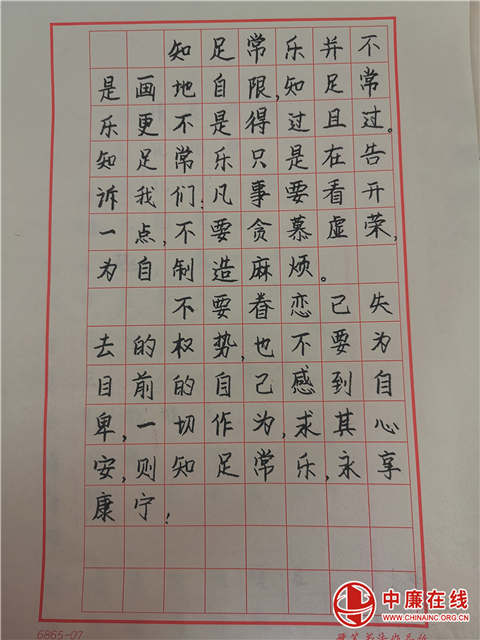 知足常乐并不
是画地自限,知足常
乐更不是得过且过。
知足常乐只是在告
诉我们:凡事要看开
一点,不要贪慕虚荣,
为自制造麻烦。
不要眷恋已失
去的权势,也不要为
目前的自己感到自
卑,一切作为,求其心
安,则知足常乐,永享
康宁!
中廉在线
WWW.CHINAINC.ORG.CN
6865-07